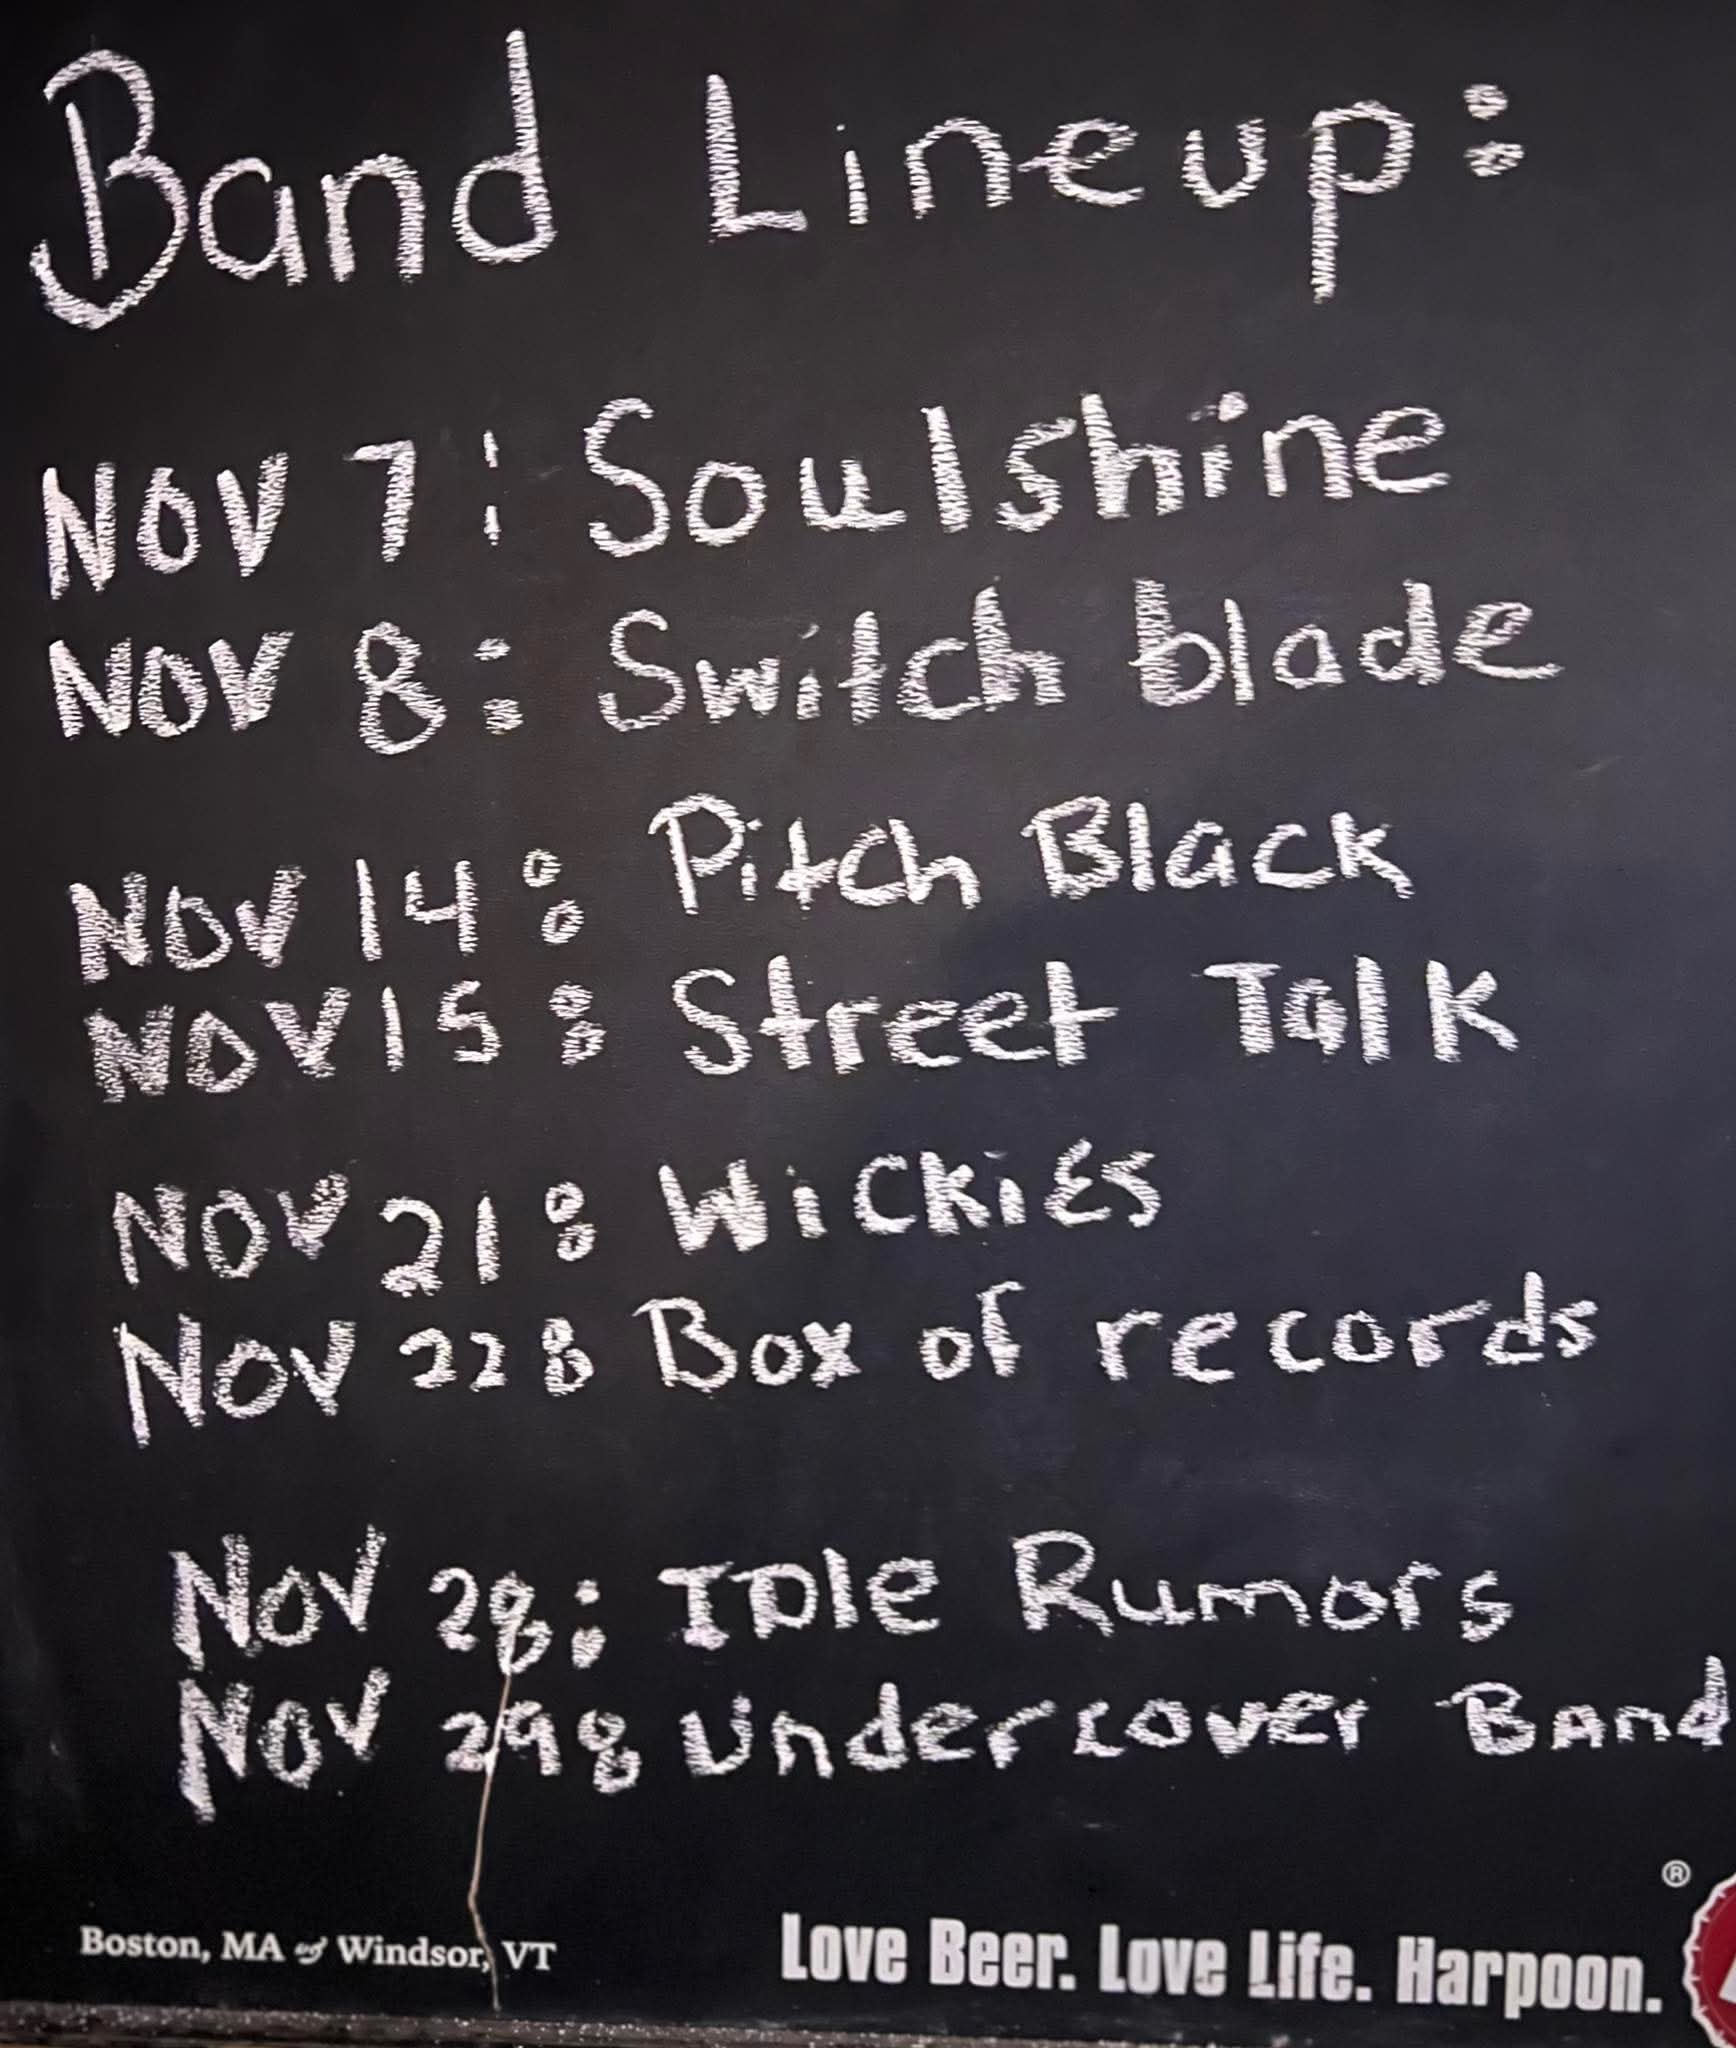 Band Lineup:
Nov 7: Soulshine
Nov 8: Switch blade
Nov 14: Pitch Black
Nov 15: Street Talk
Nov 21: Wickies
Nov 22: Box of records
Nov 28: IDle Rumors
Nov 29: Undercover Band
®
Boston, MA and Windsor, VT
Love Beer. Love Life. Harpoon.